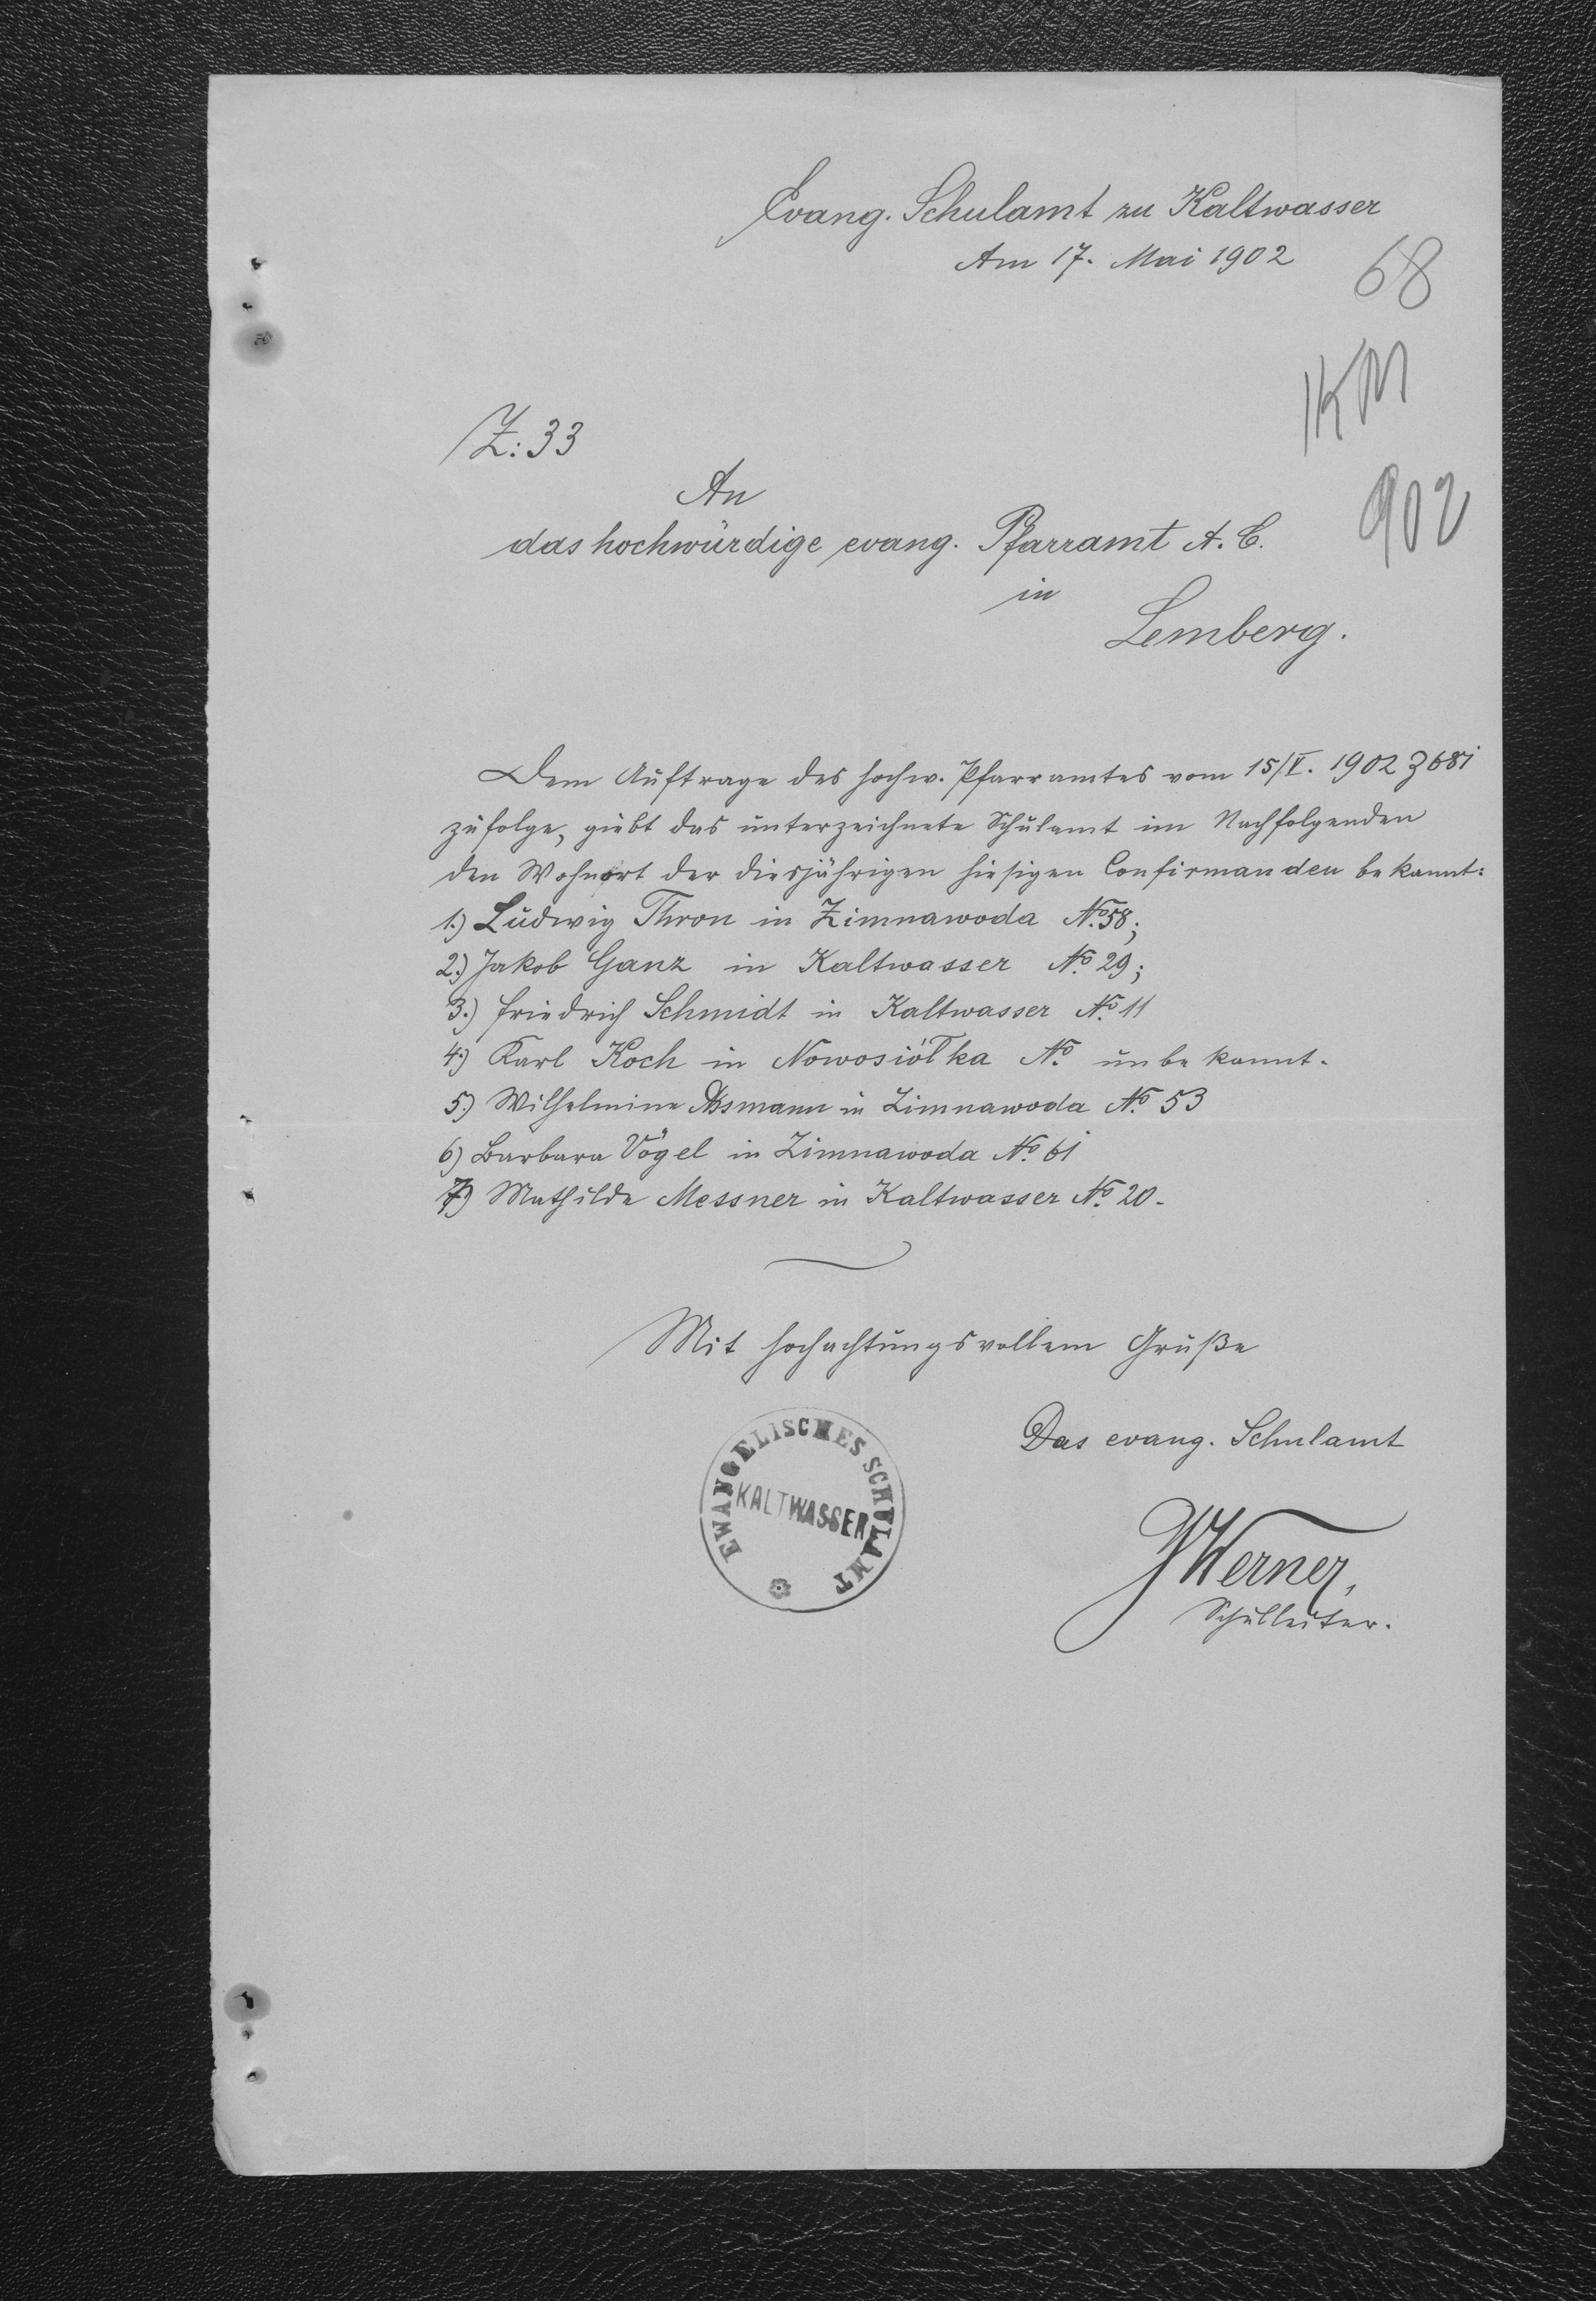 Evang. Schulamt zu Kaltwasser
Am 17. Mai 1902
68
KM
902
Z: 33
An
das hochwürdige evang. Pfarramt A. C.
in
Lemberg.
Dem Auftrage des hochw. Pfarramtes vom 15/V. 1902 Z 681
zufolge, giebt das unterzeichnete Schulamt im Nachfolgenden
den Wohnort der diesjährigen hiesigen Confirmanden bekannt:
1.) Ludwig Thron in Zimnawoda No. 58;
2.) Jakob Ganz in Kaltwasser No. 29;
3.) Friedrich Schmidt in Kaltwasser No. 11
4.) Karl Koch in Nowosiółka No. unbekannt.
5.) Wilhelmine Assmann in Zimnawoda No. 53
6) Barbara Vögel in Zimnawoda No. 61
7) Mathilde Messner in Kaltwasser No. 20.
Mit hochachtungsvollem Gruße
Das evang. Schulamt
EWANGELISCHES SCHULAMT
KALTWASSER
JWerner,
Schulleiter.